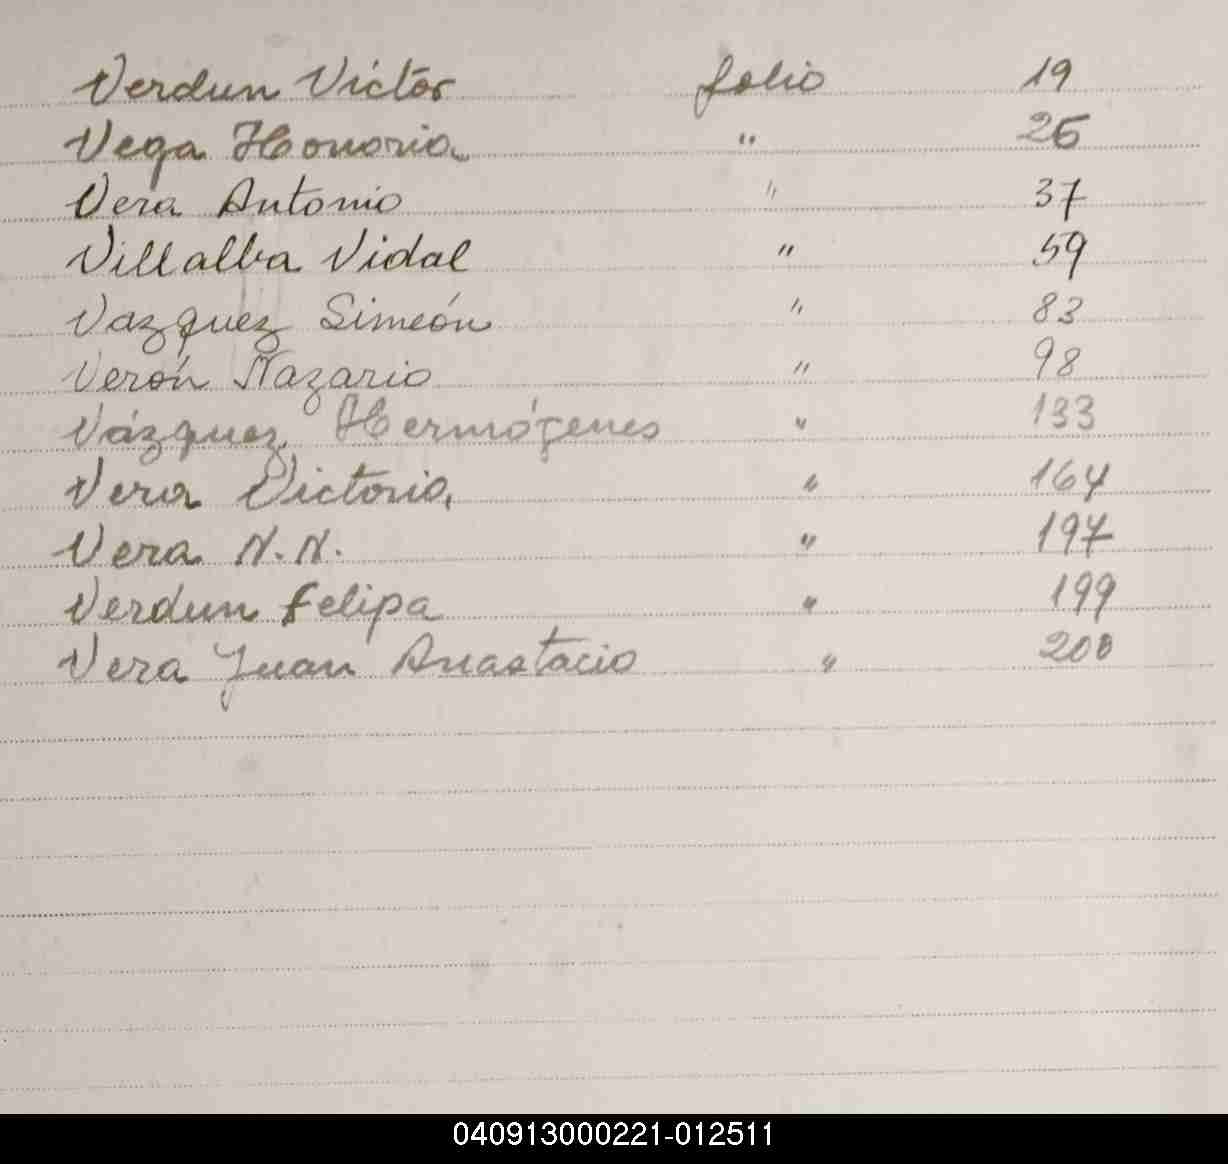 Verdun Victor folio 19
Vega Honoria " 26
Vera Antonio " 37
Villalba Vidal " 59
Vazquez Simeón " 83
Verón Nazario " 98
Vázquez Hermógenes " 133
Vera Victoria " 164
Vera N.N. " 197
Verdun Felipa " 199
Vera Juan Anastacio " 200
040913000221-012511